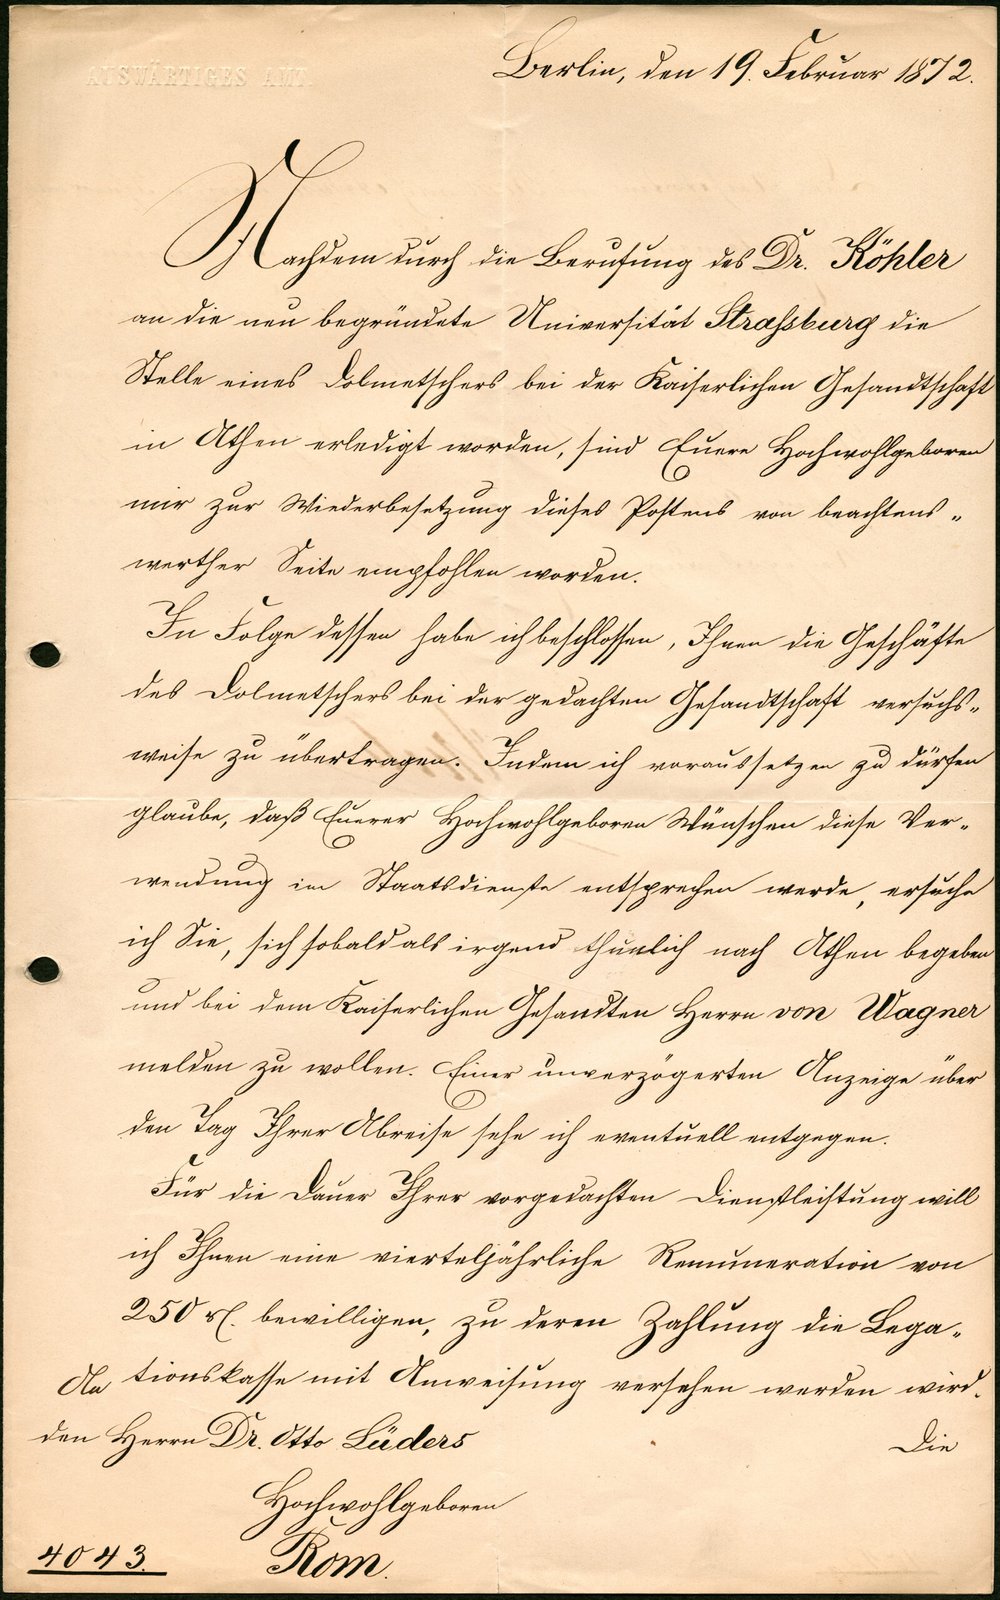 AUSWÄRTIGES AMT.
Berlin, den 19. Februar 1872.
Nachdem durch die Berufung des Dr. Köhler
an die neu begründete Universität Strassburg die
Stelle eines Dolmetschers bei der Kaiserlichen Gesandtschaft
in Athen erledigt worden, sind Euere Hochwohlgeboren
mir zur Wiederbesetzung dieses Postens von beachtens-
werther Seite empfohlen worden.
In Folge dessen habe ich beschlossen, Ihnen die Geschäfte
des Dolmetschers bei der gedachten Gesandtschaft versuchs-
weise zu übertragen. Indem ich voraussetzen zu dürfen
glaube, daß Euerer Hochwohlgeboren Wünschen diese Ver-
wendung im Staatsdienste entsprechen werde, ersuche
ich Sie, sich sobald als irgend thunlich nach Athen begeben
und bei dem Kaiserlichen Gesandten Herrn von Wagner
melden zu wollen. Einer unverzögerten Anzeige über
den Tag Ihrer Abreise sehe ich eventuell entgegen.
Für die Dauer Ihrer vorgedachten Dienstleistung will
ich Ihnen eine vierteljährliche Remuneration von
250 rl. bewilligen, zu deren Zahlung die Lega-
tionskasse mit Anweisung versehen werden wird.
Die
An
den Herrn Dr. Otto Lüders
Hochwohlgeboren
Rom.
4043.